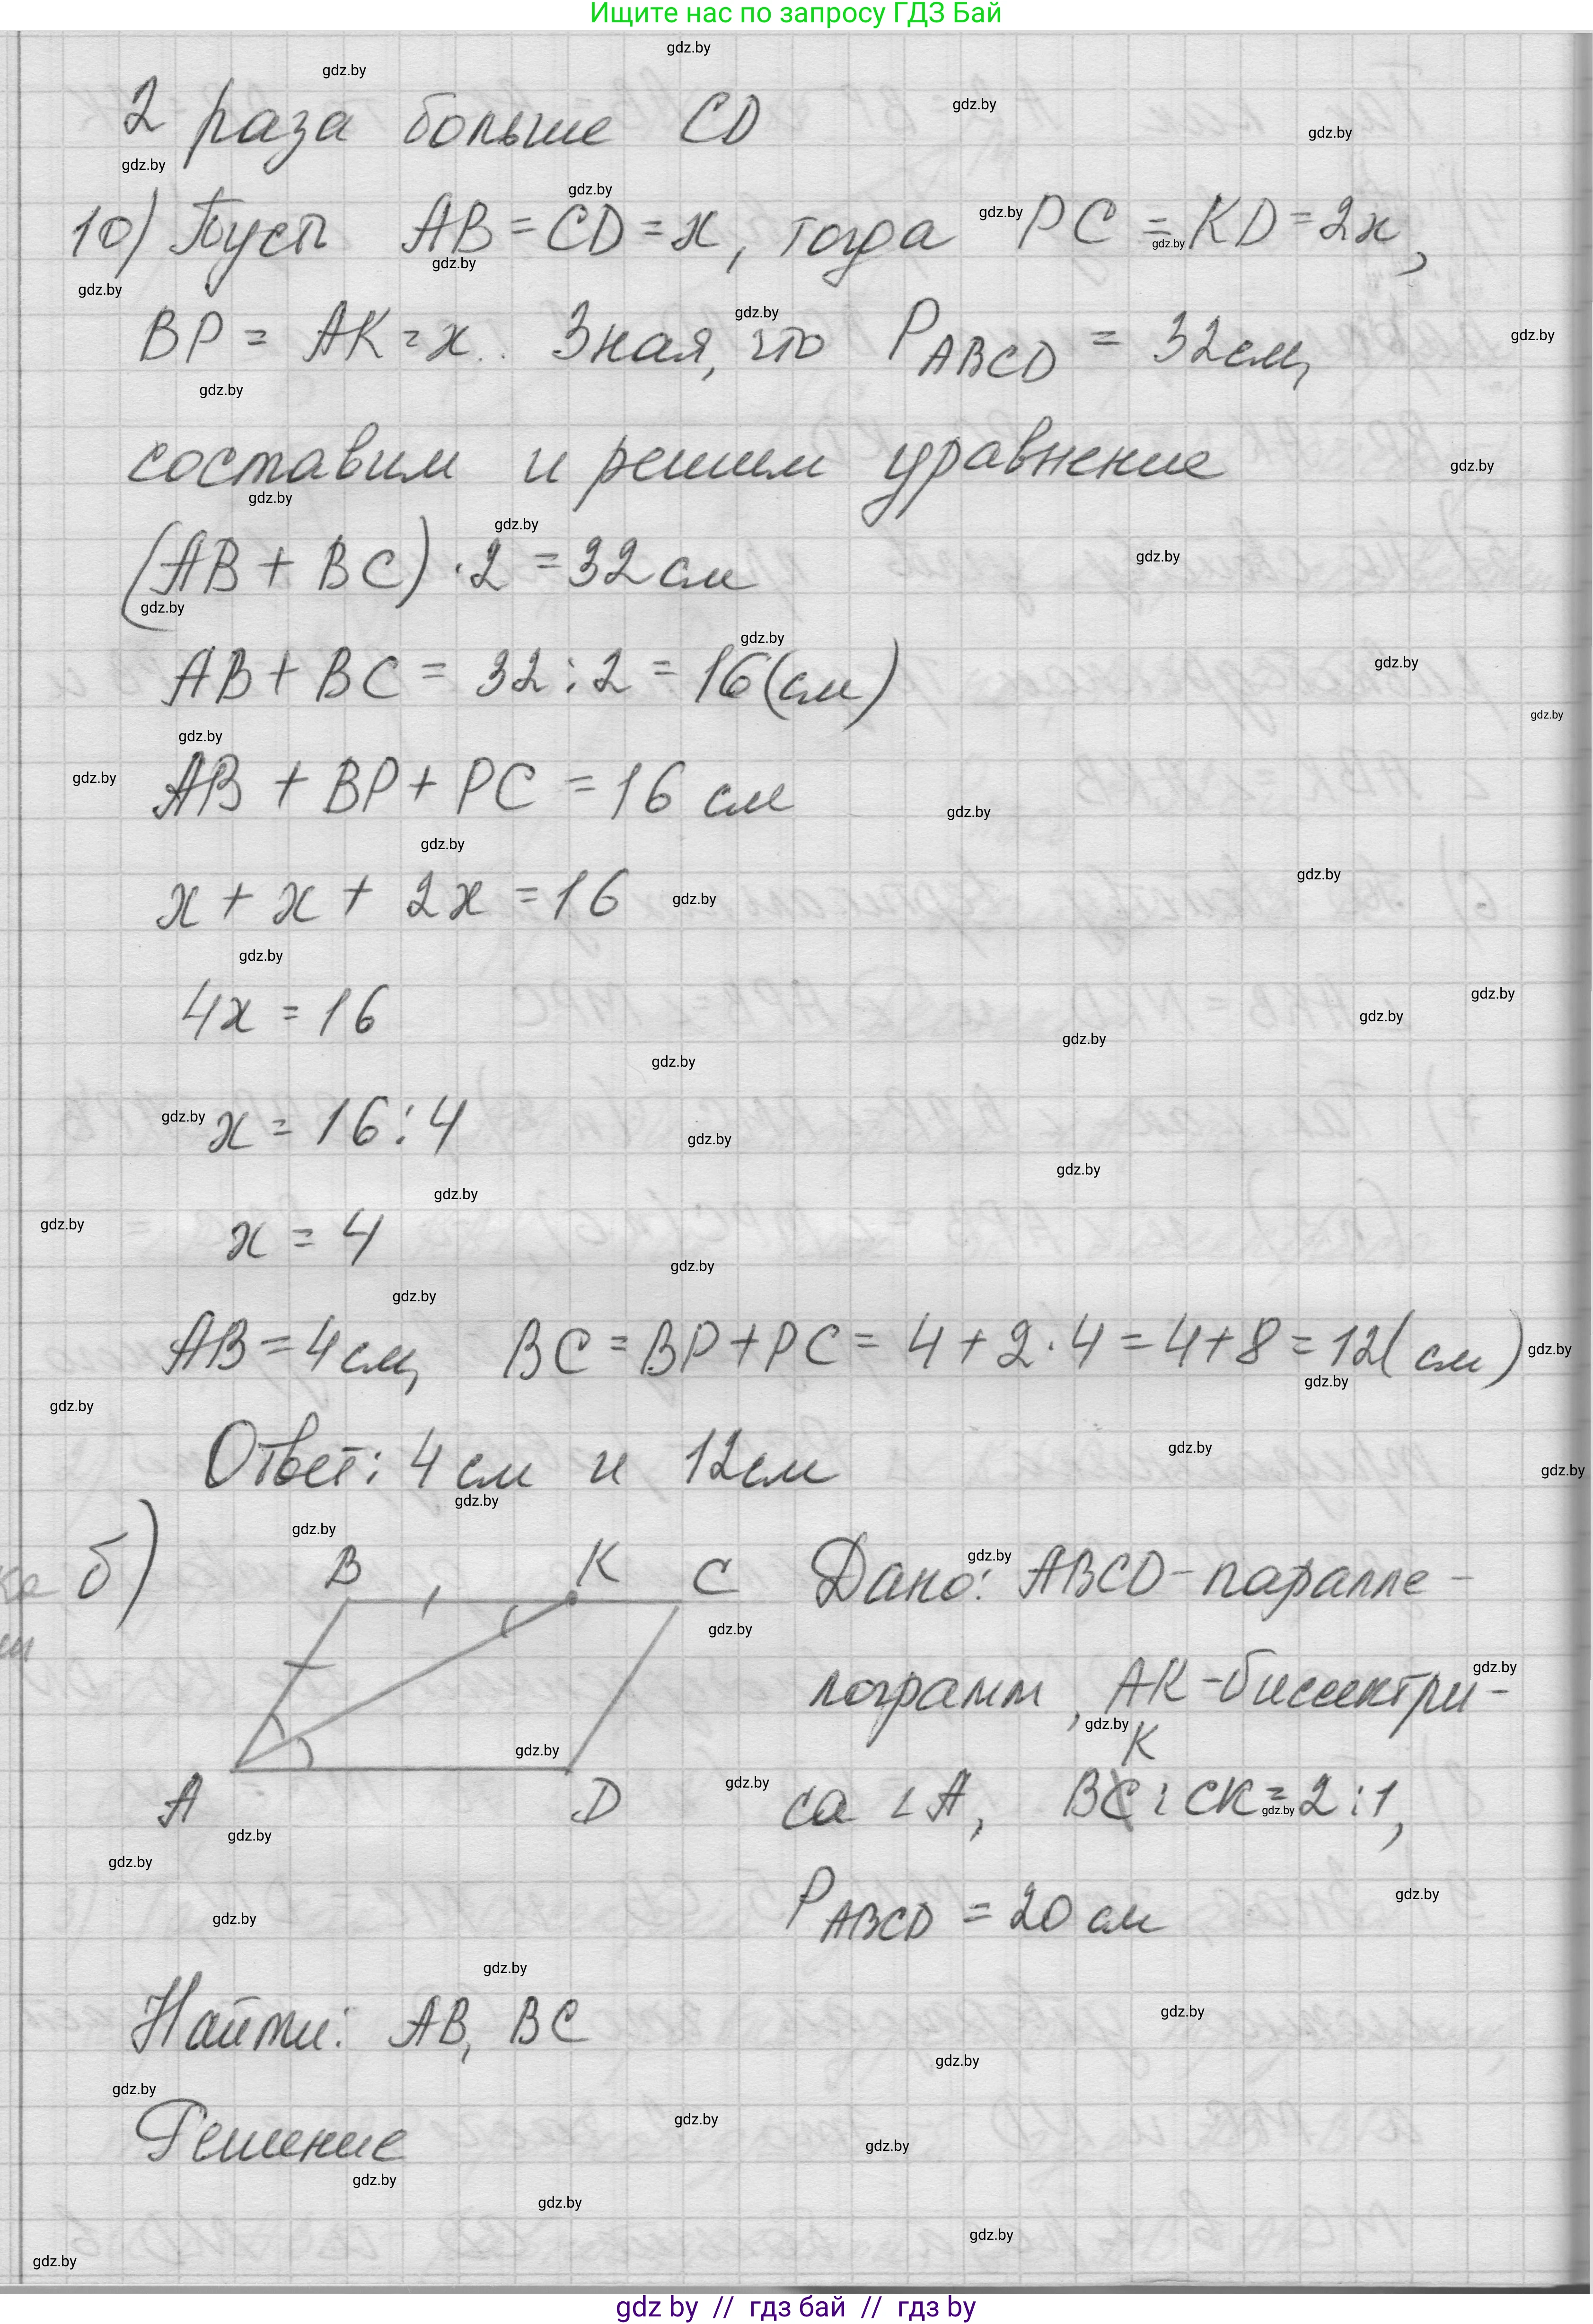 Ищите нас по запросу ГДЗ Бай
2 раза больше CD
10) Пусть AB = CD = x, тогда PC = KD = 2x,
BP = AK = x. Зная, что P ABCD = 32 см,
составим и решим уравнение
(AB + BC) · 2 = 32 см
AB + BC = 32 : 2 = 16 (см)
AB + BP + PC = 16 см
x + x + 2x = 16
4x = 16
x = 16 : 4
x = 4
AB = 4 см, BC = BP + PC = 4 + 2 · 4 = 4 + 8 = 12 (см)
Ответ: 4 см и 12 см
б) B K C Дано: ABCD - паралле-
лограмм, AK - биссектри-
K
A D са ∠A, BC : CK = 2 : 1,
P ABCD = 20 см
Найти: AB, BC
Решение
gdz by // гдз бай // гдз by